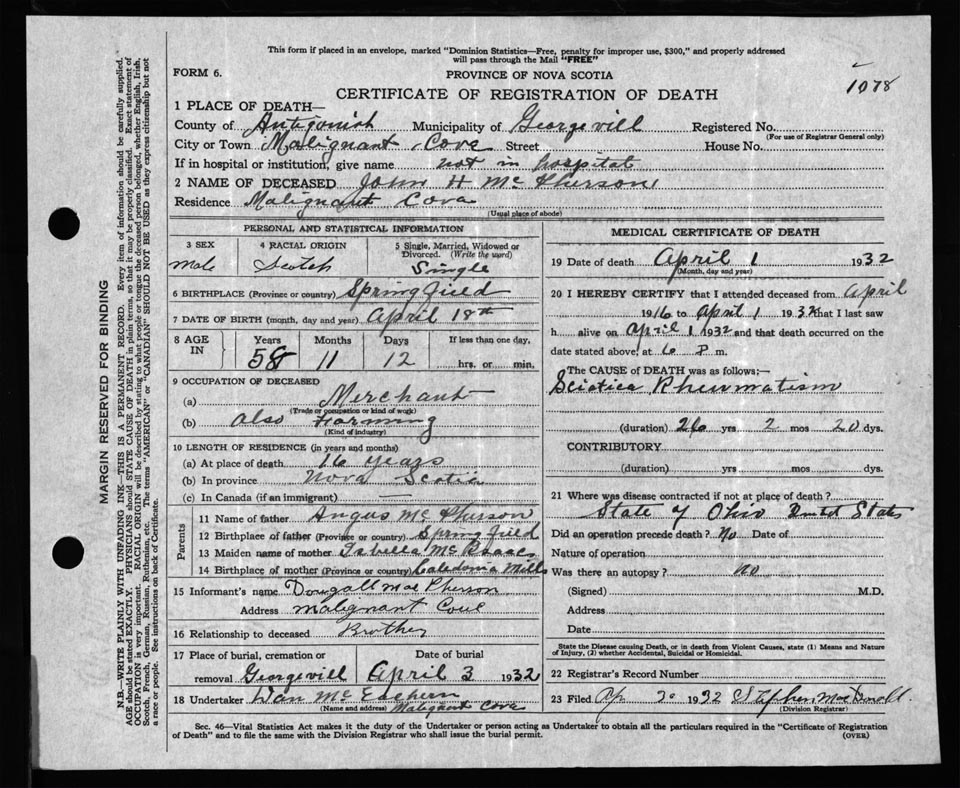 This form if placed in an envelope, marked "Dominion Statistics—Free, penalty for improper use, $300," and properly addressed
will pass through the Mail "FREE"
FORM 6.
PROVINCE OF NOVA SCOTIA
1078
CERTIFICATE OF REGISTRATION OF DEATH
1 PLACE OF DEATH—
County of Antigonish Municipality of Georgevill Registered No.
(For use of Registrar General only)
City or Town Malignant Cove Street House No.
If in hospital or institution, give name not in hospital
2 NAME OF DECEASED John H McPherson
Residence Malignant Cova
(Usual place of abode)
PERSONAL AND STATISTICAL INFORMATION
3 SEX 4 RACIAL ORIGIN 5 Single, Married, Widowed or
Divorced. (Write the word)
Male Scotch Single
6 BIRTHPLACE (Province or country) Springfield
7 DATE OF BIRTH (month, day and year) April 18th
8 AGE IN Years Months Days If less than one day,
58 11 12 hrs. or min.
9 OCCUPATION OF DECEASED
(a) Merchant
(Trade or occupation or kind of work)
(b) also Farming
(Kind of industry)
10 LENGTH OF RESIDENCE (in years and months)
(a) At place of death 16 years
(b) In province Nova Scotia
(c) In Canada (if an immigrant) —
Parents
11 Name of father Angus McPherson
12 Birthplace of father (Province or country) Springfield
13 Maiden name of mother Isbella McIsaac
14 Birthplace of mother (Province or country) Caledonia Mills
15 Informant's name Dougall MacPherson
Address Malignant Cove
16 Relationship to deceased Brother
17 Place of burial, cremation or Date of burial
removal Georgevill April 3 1932
18 Undertaker Dan McEachern
(Name and address) Malignant Cove
MEDICAL CERTIFICATE OF DEATH
19 Date of death April 1 1932
(Month, day and year)
20 I HEREBY CERTIFY that I attended deceased from April
1916 to April 1 1932 that I last saw
h alive on April 1 1932 and that death occurred on the
date stated above, at 6 P m.
The CAUSE of DEATH was as follows:—
Sciatica Rheumatism
(duration) 26 yrs 2 mos 20 dys.
CONTRIBUTORY
(duration) yrs. mos. dys.
21 Where was disease contracted if not at place of death?
State of Ohio United States
Did an operation precede death? No Date of
Nature of operation
Was there an autopsy? no
(Signed) M.D.
Address
Date
State the Disease causing Death, or in death from Violent Causes, state (1) Means and Nature
of Injury, (2) whether Accidental, Suicidal or Homicidal.
22 Registrar's Record Number
23 Filed Ap 30 1932 Stephen MacDonald
(Division Registrar)
Sec. 46—Vital Statistics Act makes it the duty of the Undertaker or person acting as Undertaker to obtain all the particulars required in the "Certificate of Registration
of Death" and to file the same with the Division Registrar who shall issue the burial permit.
(OVER)
MARGIN RESERVED FOR BINDING
N.B.—WRITE PLAINLY WITH UNFADING INK—THIS IS A PERMANENT RECORD. Every item of information should be carefully supplied.
AGE should be stated EXACTLY. PHYSICIANS should STATE CAUSE OF DEATH in plain terms, so that it may be properly classified. Exact statement of
OCCUPATION is very important. RACIAL ORIGIN will be described by stating to what people or tongue the deceased person belonged, whether English, Irish,
Scotch, French, German, Russian, Ruthenian, etc. The terms "AMERICAN" or "CANADIAN" SHOULD NOT BE USED as they express citizenship but not
a race or people. See instructions on back of Certificate.